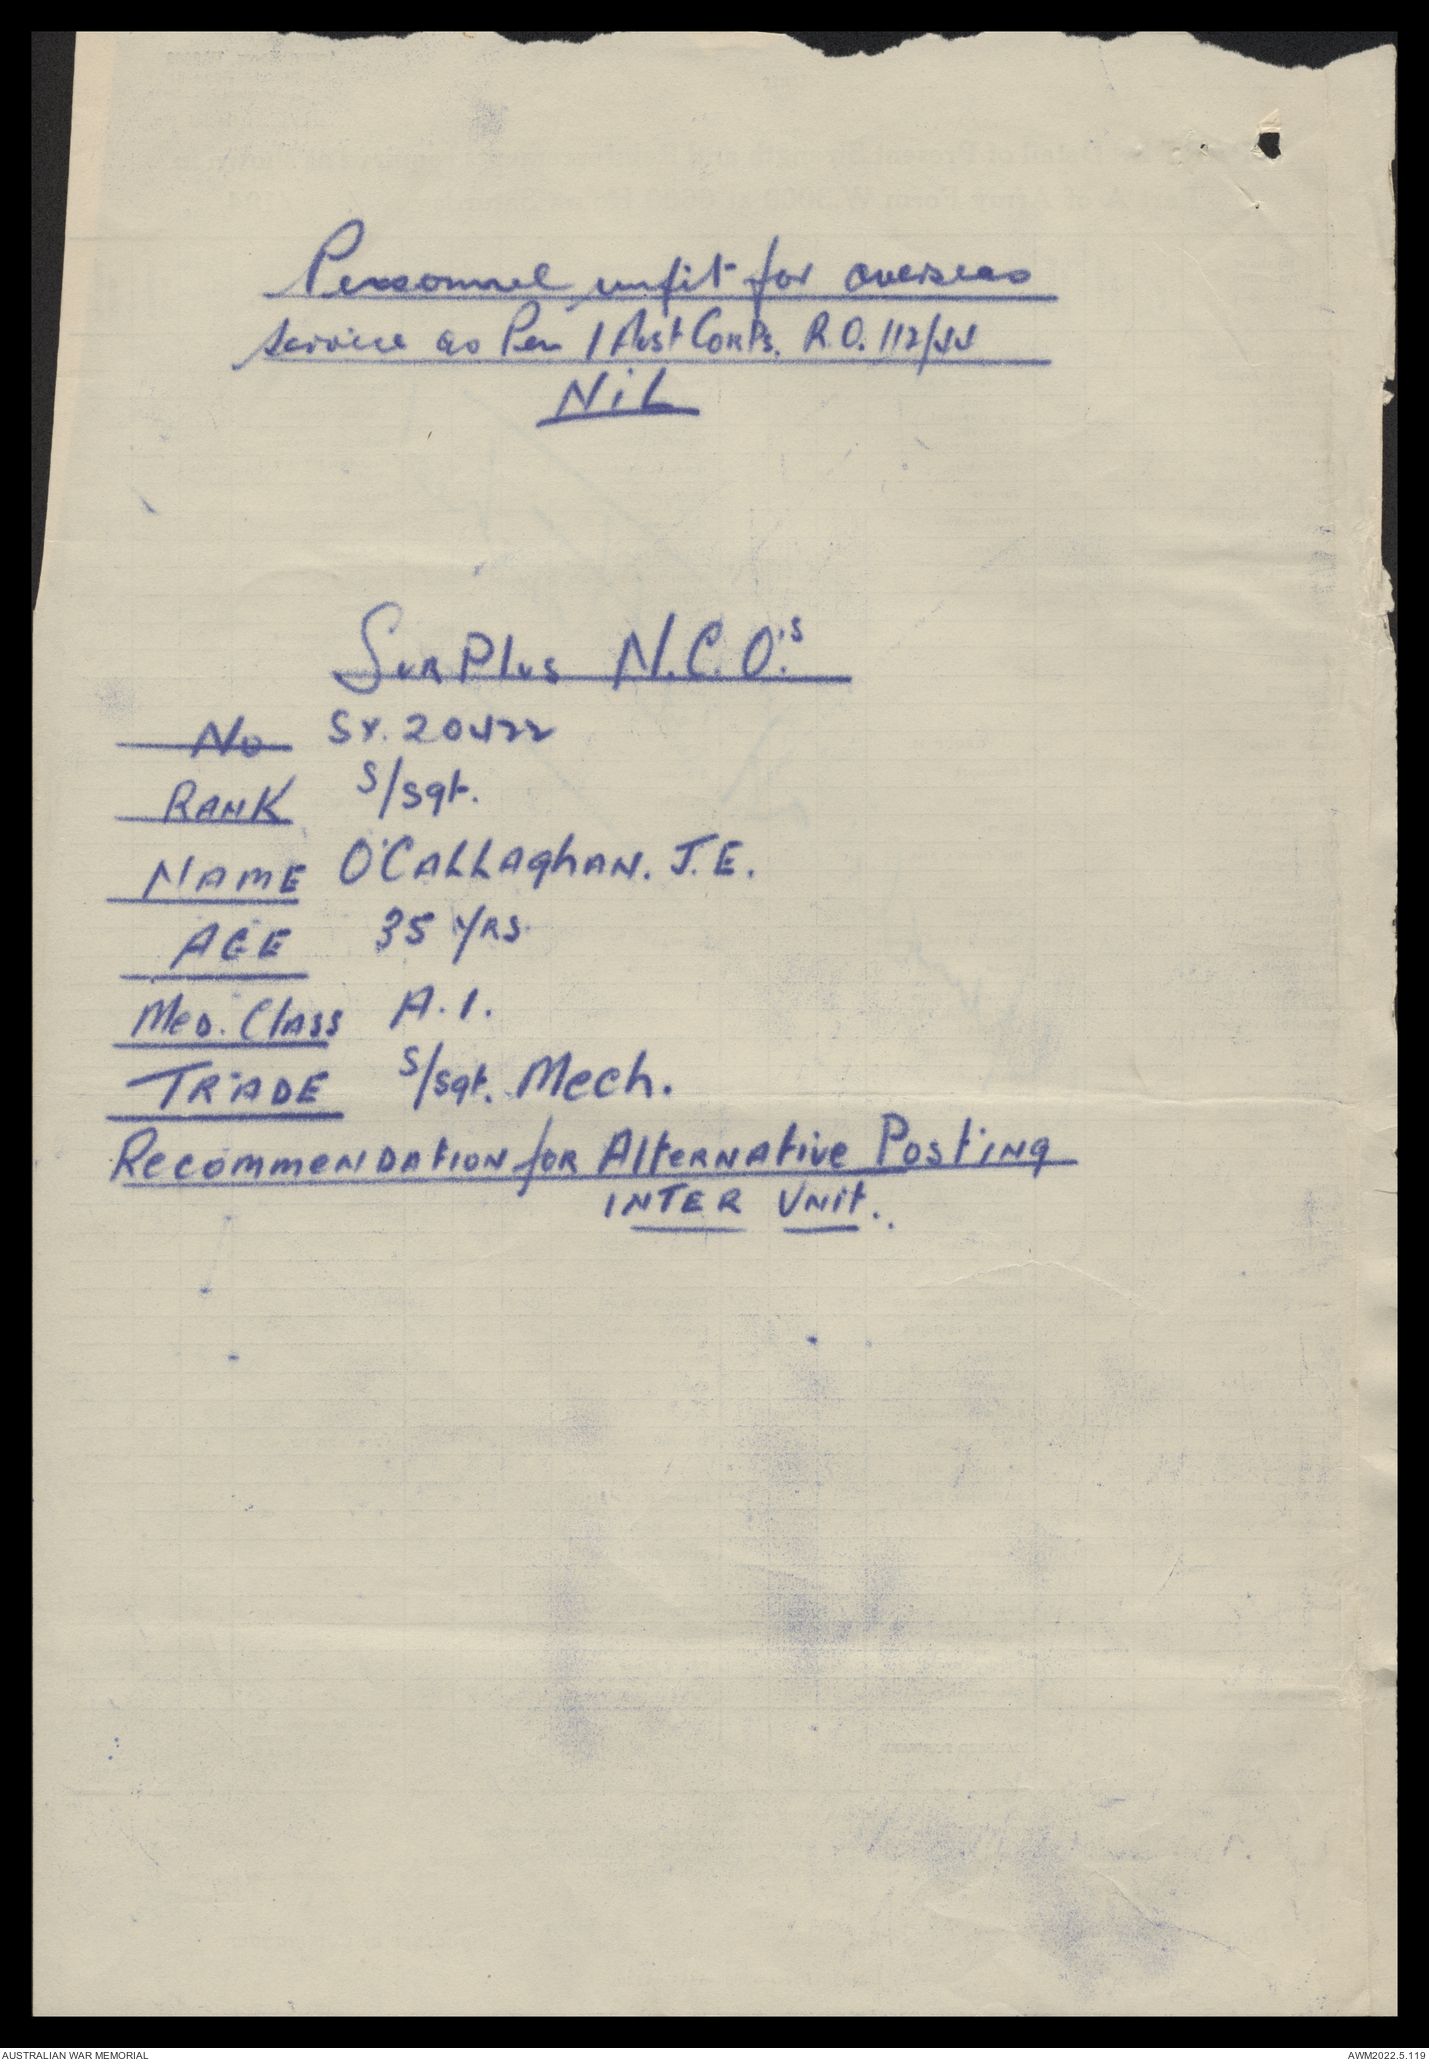 Personnel unfit for overseas
service as Per 1 Aust Corps. R.O. 112/44
NiL
SurPlus N.C.O.'s
No SX.20422
RANK S/Sgt.
NAME O'CALLAghAN. J.E.
AGE 35 YRS
Med. Class A.1.
TRADE S/Sgt. Mech.
Recommendation for Alternative Posting
INTER UNit.
AUSTRALIAN WAR MEMORIAL
AWM2022.5.119